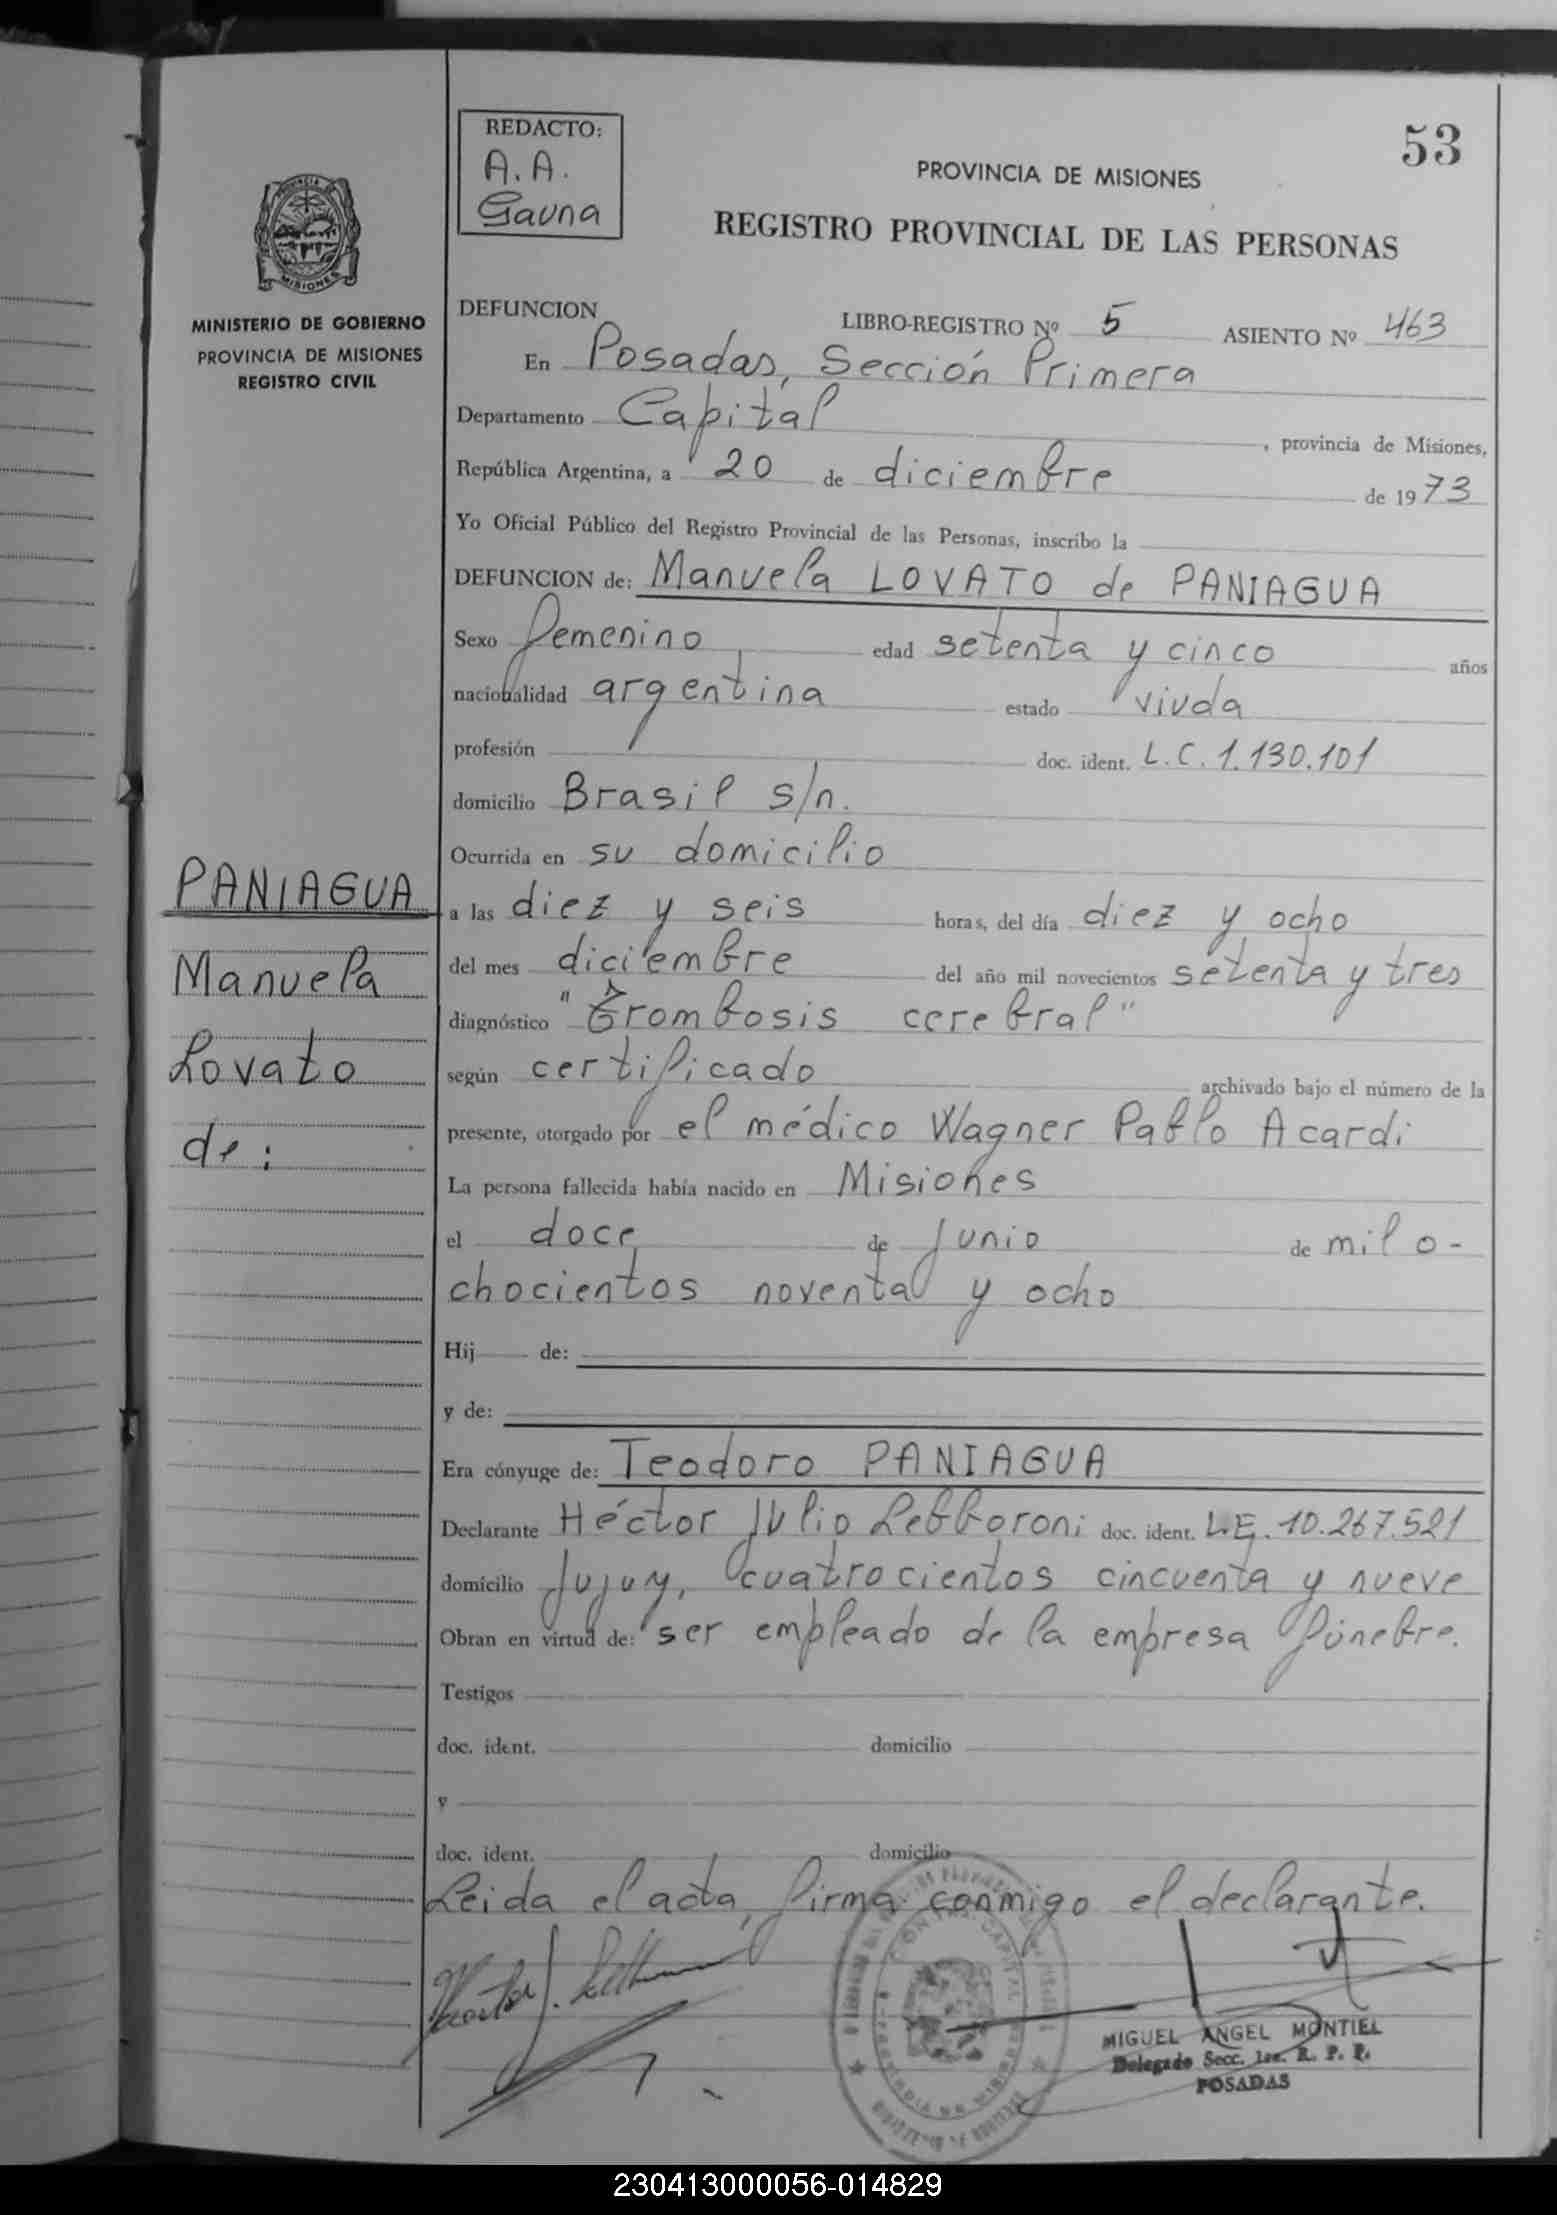 53
REDACTO:
A. A.
Gauna
PROVINCIA DE MISIONES
REGISTRO PROVINCIAL DE LAS PERSONAS
MISIONES
MINISTERIO DE GOBIERNO
PROVINCIA DE MISIONES
REGISTRO CIVIL
DEFUNCION LIBRO-REGISTRO Nº 5 ASIENTO Nº 463
En Posadas, Sección Primera
Departamento Capital, provincia de Misiones,
República Argentina, a 20 de diciembre de 1973
Yo Oficial Público del Registro Provincial de las Personas, inscribo la
DEFUNCION de: Manuela LOVATO de PANIAGUA
Sexo femenino edad setenta y cinco años
nacionalidad argentina estado viuda
profesión doc. ident. L.C. 1.130.101
domicilio Brasil s/n.
Ocurrida en su domicilio
PANIAGUA
Manuela
Lovato
de:
a las diez y seis horas, del día diez y ocho
del mes diciembre del año mil novecientos setenta y tres
diagnóstico "Trombosis cerebral"
según certificado archivado bajo el número de la
presente, otorgado por el médico Wagner Pablo Acardi
La persona fallecida había nacido en Misiones
el doce de junio de mil o-
chocientos noventa y ocho
Hij de:
y de:
Era cónyuge de: Teodoro PANIAGUA
Declarante Héctor Julio Lebboroni doc. ident. L.E. 10.267.521
domicilio Jujuy, cuatrocientos cincuenta y nueve
Obran en virtud de: ser empleado de la empresa fúnebre.
Testigos
doc. ident. domicilio
y
doc. ident. domicilio
Leida el acta, firma conmigo el declarante.
MIGUEL ANGEL MONTIEL
Delegado Secc. 1ra. R. P. P.
POSADAS
230413000056-014829